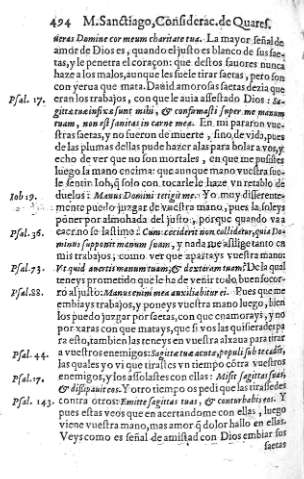 494 M. Sanctiago, Considerac. de Quares.
ueras Domine cor meum charitate tua. La mayor señal de
amor de Dios es, quando el justo es blanco de sus sae-
tas, y le penetra el coraçon: que destos sauores nunca
haze a los malos, aunque les suele tirar saetas, pero son
con yerua que mata. Dauid amorosas saetas dezia que
Psal. 17. eran los trabajos, con que le auia assestado Dios: Sa-
gittæ tuæ infixæ sunt mihi, & confirmasti super me manum
tuam, non est sanitas in carne mea. En mi pararon vue-
stras saetas, y no fueron de muerte, sino, de vida, pues
de las plumas dellas pude hazer alas para bolar a vos, y
echo de ver que no son mortales, en que me pusistes
luego la mano encima: que aunque mano vuestra sue-
le sentir Iob, q̃ solo con tocarle le haze vn retablo de
Iob 19. duelos: Manus Domini tetigit me. Yo muy differente-
mente puedo juzgar de vuestra mano, pues la soleys
poner por almohada del justo, porque quando vaa
Psal. 36. caer no se lastime: Cum ceciderit non collidetur, quia Do-
minus supponit manum suam, y nada me aflige tanto en
mis trabajos, como ver que apartays vuestra mano:
Psal. 73. Vt quid auertis manum tuam, & dexteram tuam? De la qual
teneys prometido que le ha de venir todo buen socor-
Psal. 88. ro al justo: Manus enim mea auxiliabitur ei. Pues que me
embiays trabajos, y poneys vuestra mano luego, bien
los puedo juzgar por saetas, con que enamorays, y no
por xaras con que matays, que si vos las quisierades pa
ra esto, tambien las teneys en vuestra aljaua para tirar
Psal. 44. a vuestros enemigos: Sagittæ tuæ acutæ, populi sub te cadẽt,
las quales yo vi que tirastes vn tiempo cõtra vuestros
Psal. 17. enemigos, y los assolastes con ellas: Misit sagittas suas,
& dissipauit eos. Y otro tiempo os pedi que las tirassedes
Psal. 143. contra otros: Emitte sagittas tuas, & conturbabis eos. Y
pues estas veos que en acertandome con ellas, luego
viene vuestra mano, mas amor q̃ dolor hallo en ellas.
Veys como es señal de amistad con Dios embiar sus
saetas